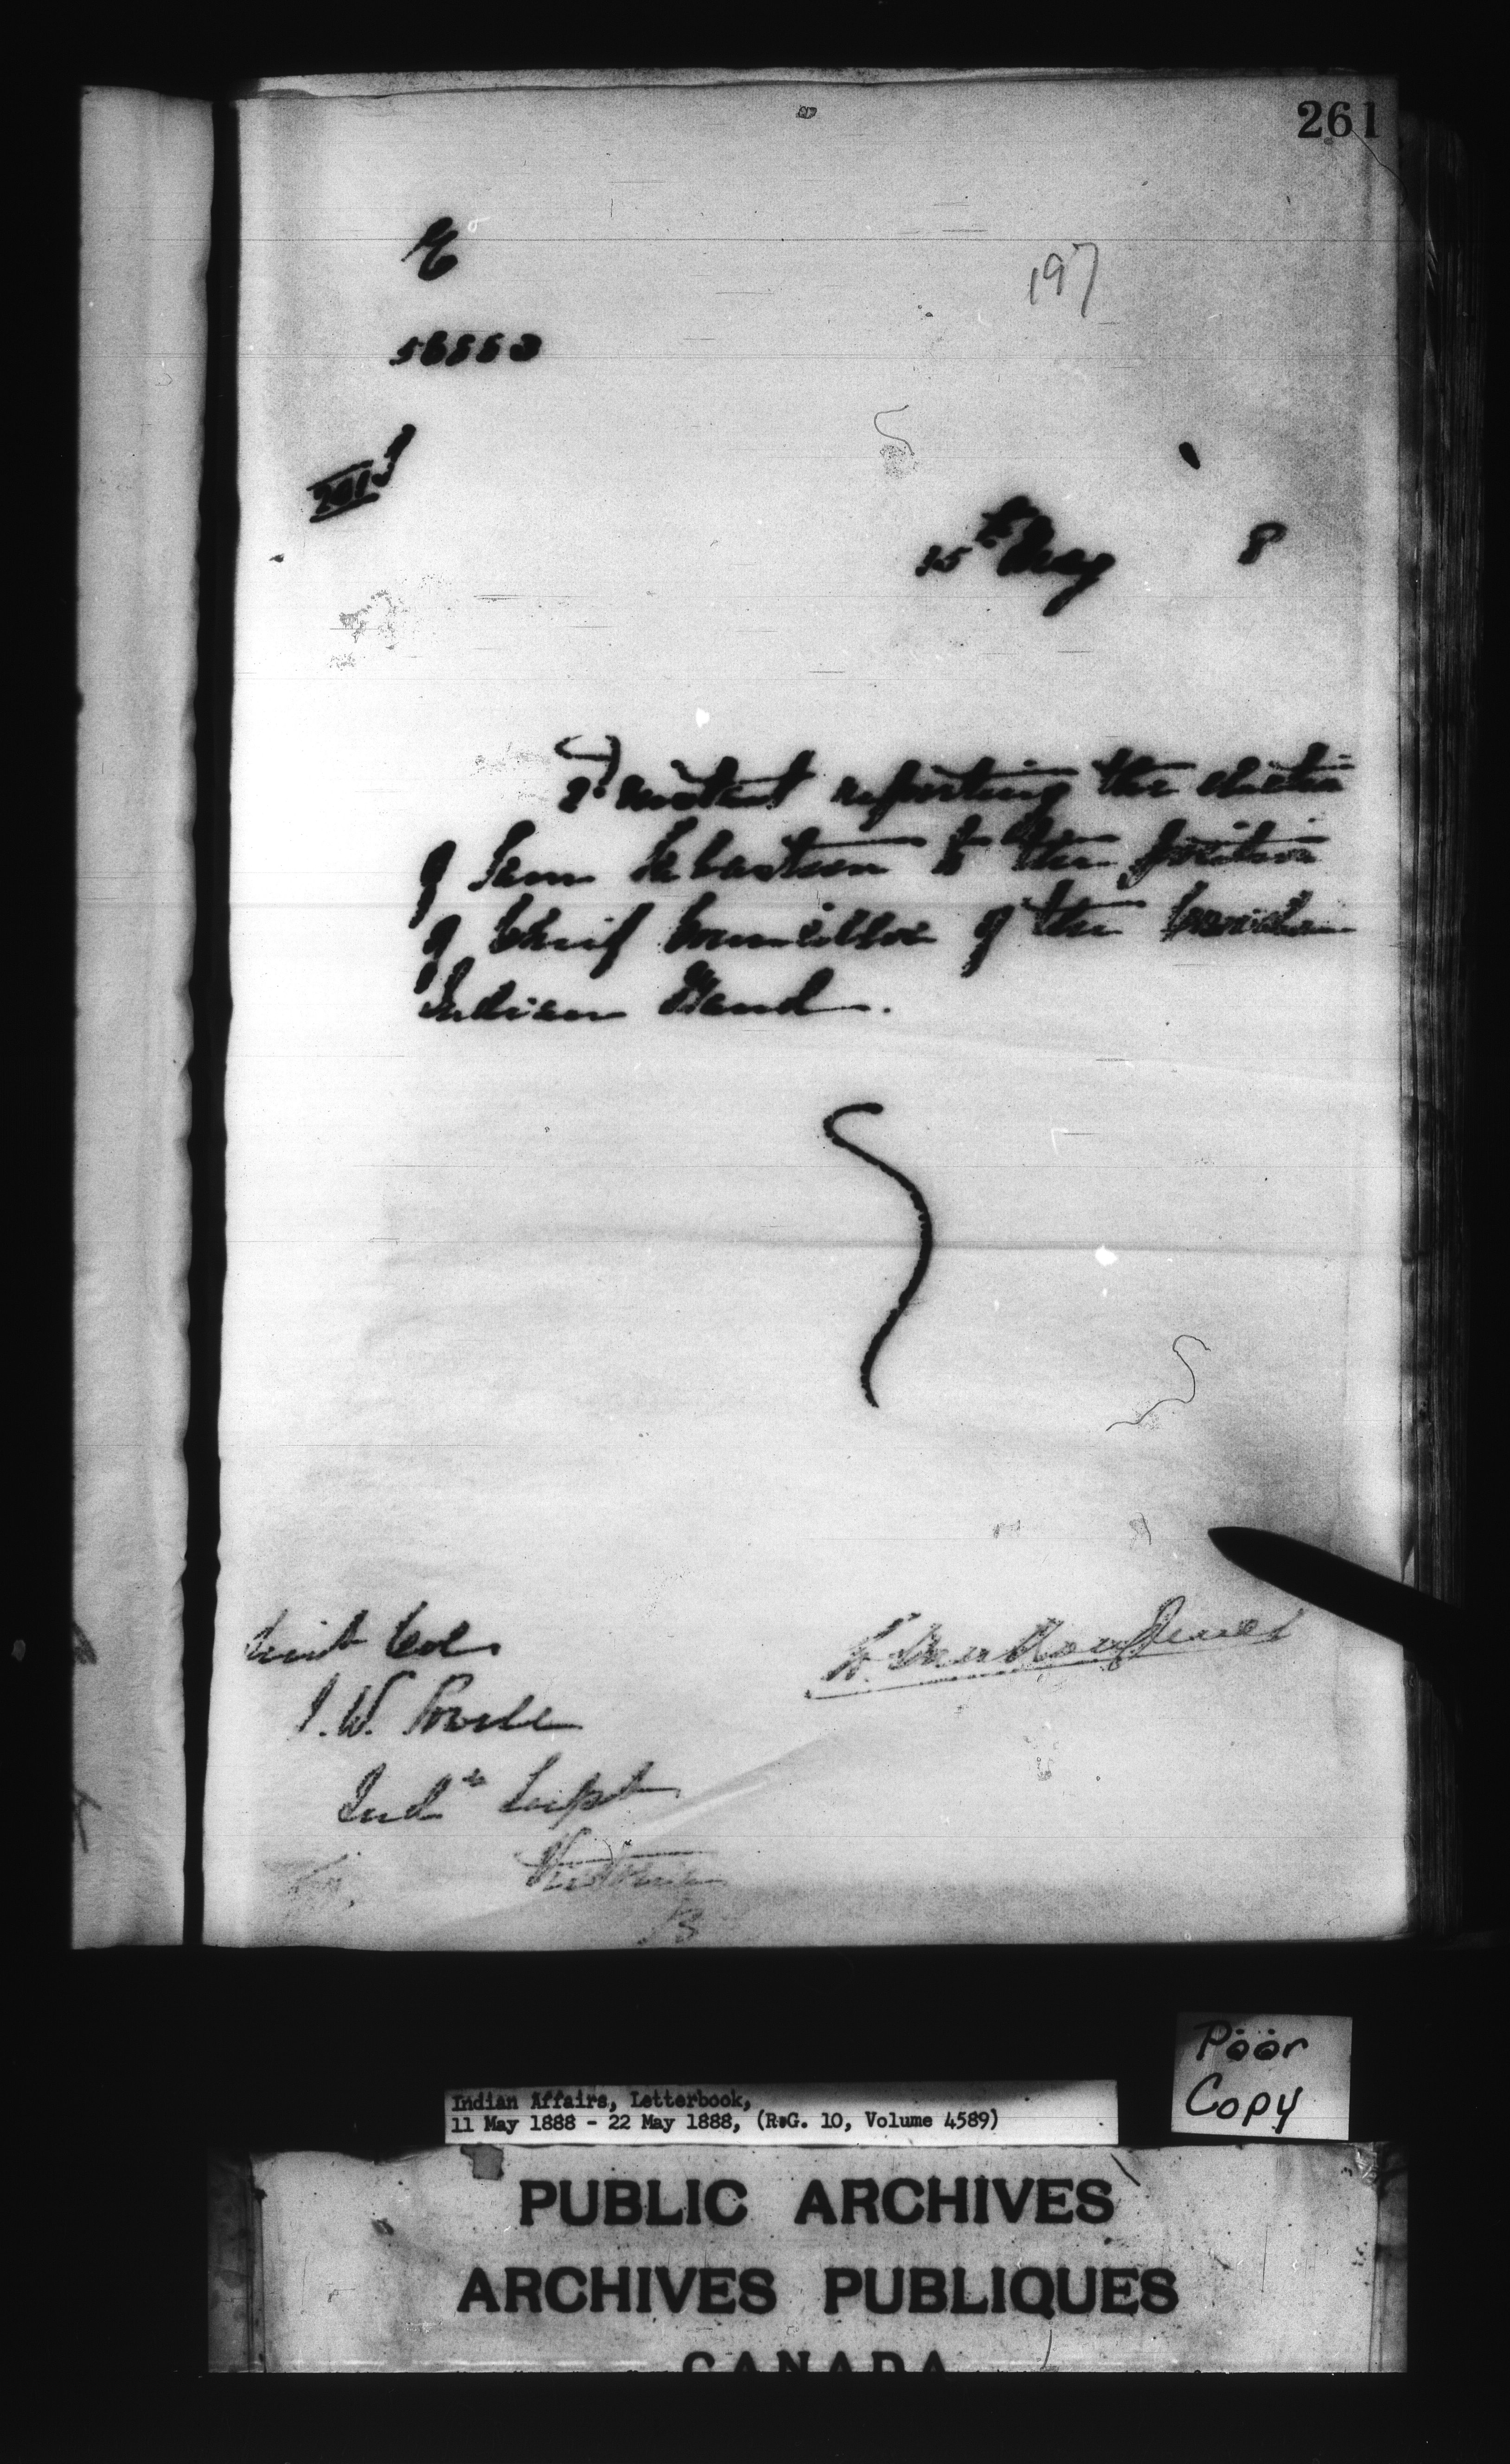 261
197
15th May 8
2d instant reporting the election
of Sam Sebastian to the position
of Chief Councillor of the Cowichan
Indian Band.
Lieut Col.
I. W. Powell
Indn Supt
Victoria
B
Poor
Copy
Indian Affairs, Letterbook,
11 May 1888 - 22 May 1888, (R.G. 10, Volume 4589)
PUBLIC ARCHIVES
ARCHIVES PUBLIQUES
CANADA